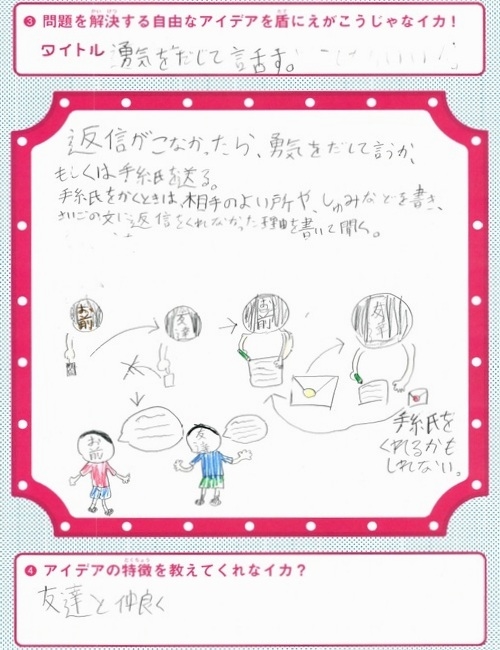 ❸ 問題を解決する自由なアイデアを盾にえがこうじゃなイカ！
タイトル 湧気をだして言話す。
返信がこなかったら、勇気をだして言うか、
もしくは手紙を送る。
手紙をかくときは、相手のよい所や、しゅみなどを書き、
さいごの文に返信をくれなかった理由を書いて聞く。
お前
友達
お前
友達
お前
友達
手紙を
くれるかも
しれない。
❹ アイデアの特徴を教えてくれなイカ？
友達と仲良く